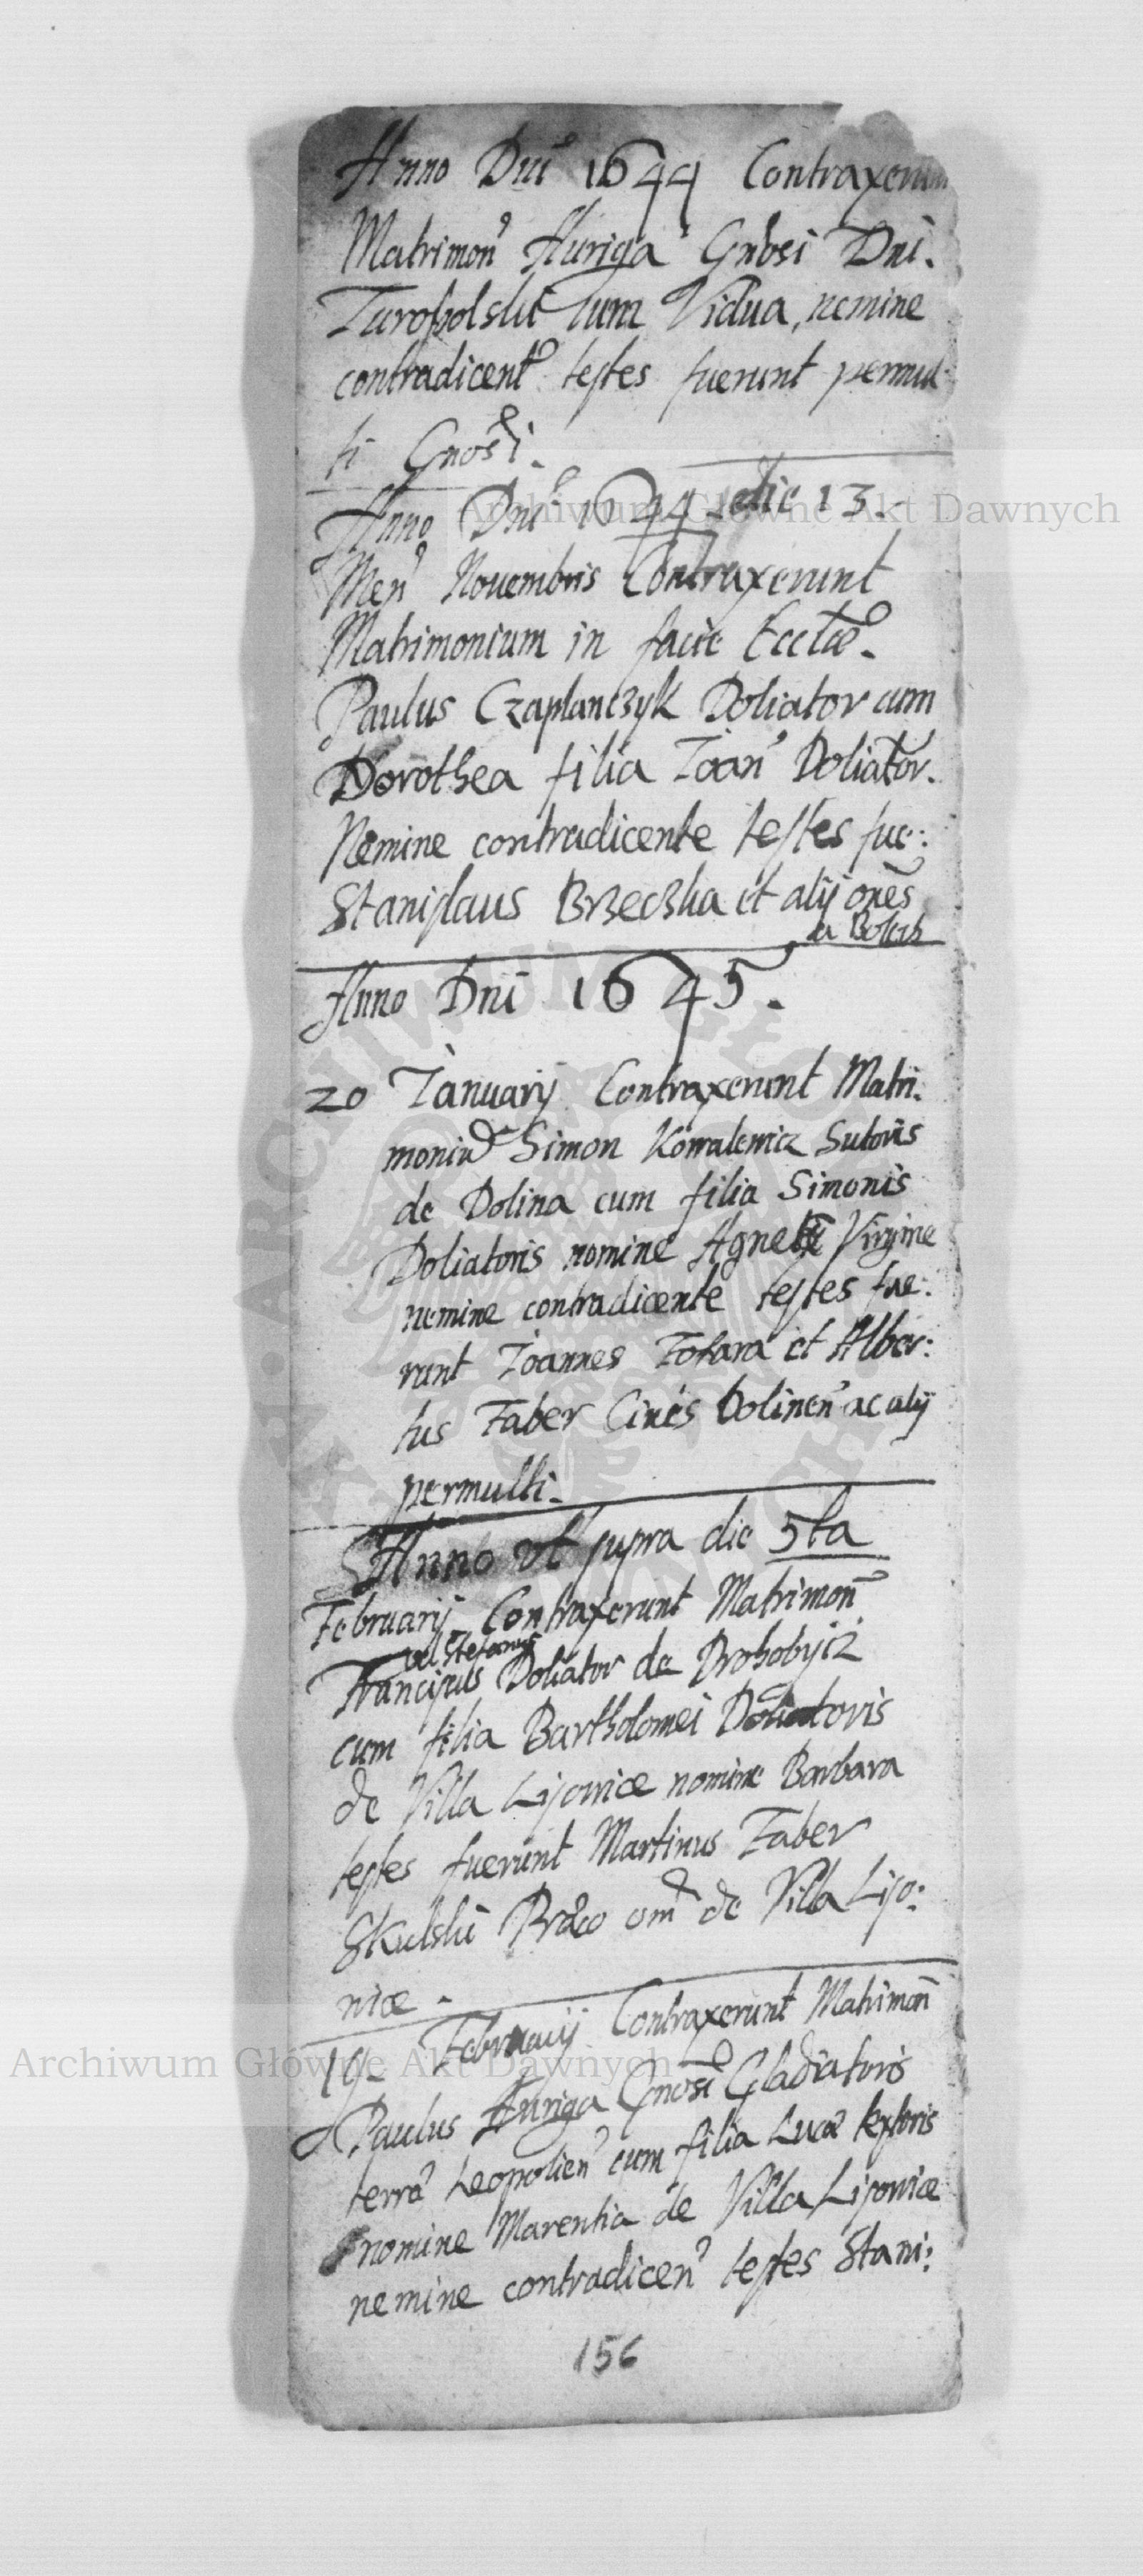 Anno Dni 1644 Contraxerunt
Matrimon Auriga Gnosi Dni.
Turobolskii cum Vidua, nemine
contradicent testes fuerunt permul
ti Gnosi.
Anno Dni 1644 die 13.
Men Nouembris Contraxerunt
Matrimonium in facie Ecclæ.
Paulus Czaplanczyk Doliator cum
Dorothea filia Ioan Doliator.
Nemine contradicente testes fue:
Stanislaus Brzeczka et alij oñes
Anno Dni 1645.
20 Ianuarij Contraxerunt Matri:
moniu Simon Kowalewicz Sutoris
de Dolina cum filia Simonis
Doliatoris nomine Virgine
nemine contradicente testes fue:
runt Ioannes et Alber:
tus Faber Ciues Dolinen ac alij
permulti.
Anno vt supra die 5ta
Februarij Contraxerunt Matrimon
vel Stefanus
Franciscus Doliator de Drohobycz
cum filia Bartholomei Doliatoris
de Villa Lisowice nomine Barbara
testes fuerunt Martinus Faber
Skulskii om de Villa Liso:
wice.
19 Februarij Contraxerunt Matrimon
Paulus Auriga Gnosi Gladiatoris
terræ Leopolien cum filia Lucæ textoris
nomine Marentia de Villa Lisowice
nemine contradicen testes Stani:
156
Archiwum Główne Akt Dawnych
Archiwum Główne Akt Dawnych